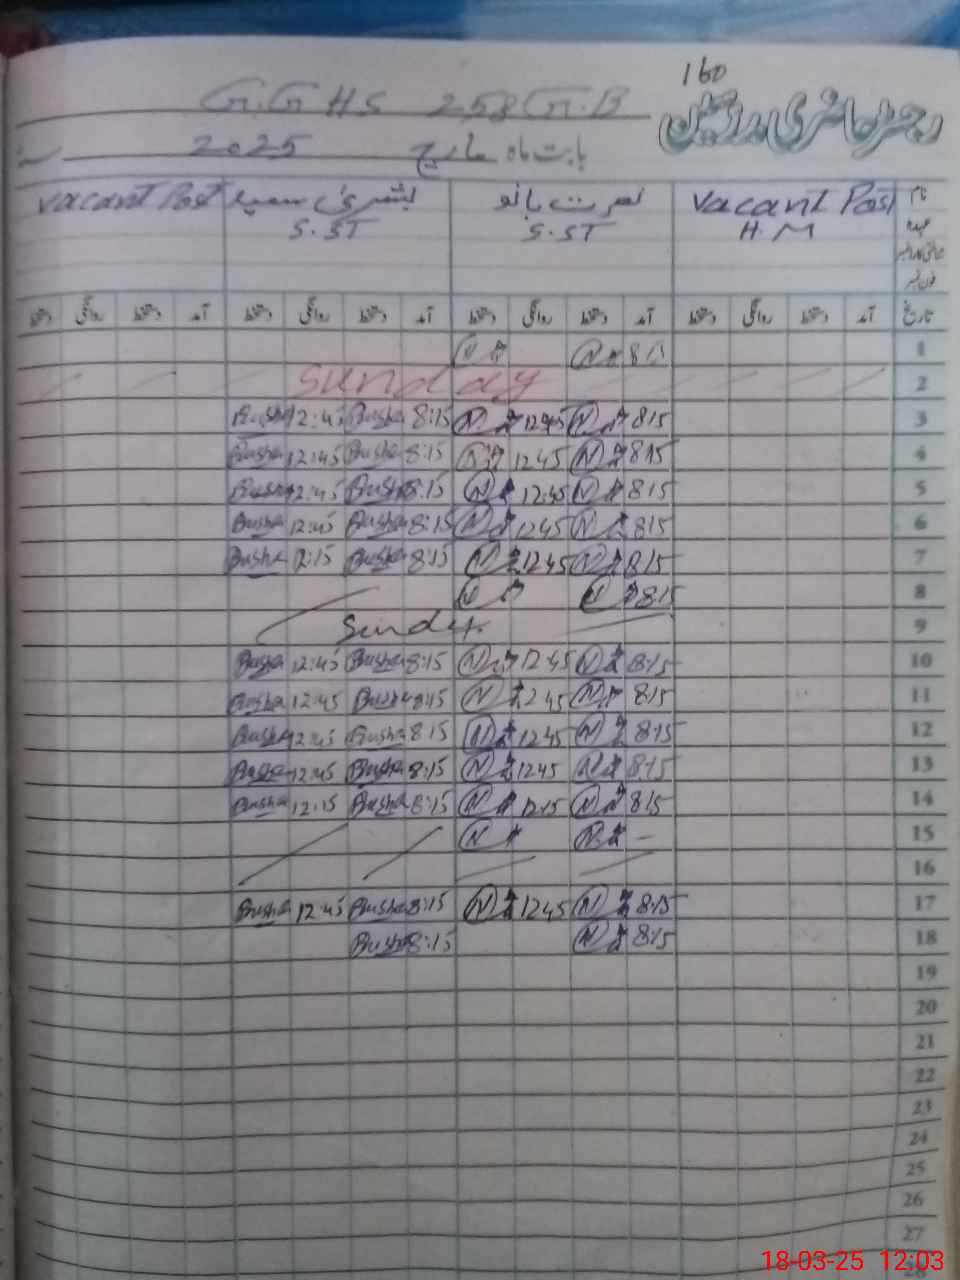 160
G.GHS 258 G.B رجسٹر حاضری مدرسین
بابت ماہ مارچ 2025
نام Vacant Post نصرت بانو بشریٰ سعید Vacant Post
عہدہ H.M S.ST S.ST
فون نمبر
تاریخ آمد دستخط روانگی دستخط آمد دستخط روانگی دستخط آمد دستخط روانگی دستخط آمد دستخط روانگی دستخط
1 8:15 N N
2 Sunday
3 8:15 N 12:45 N 8:15 Bushra 12:45 Bushra
4 8:15 N 12:45 N 8:15 Bushra 12:45 Bushra
5 8:15 N 12:45 N 8:15 Bushra 12:45 Bushra
6 8:15 N 12:45 N 8:15 Bushra 12:45 Bushra
7 8:15 N 12:45 N 8:15 Bushra 12:15 Bushra
8 8:15 N N
9 Sunday
10 8:15 N 12:45 N 8:15 Bushra 12:45 Bushra
11 8:15 N 12:45 N 8:15 Bushra 12:45 Bushra
12 8:15 N 12:45 N 8:15 Bushra 12:45 Bushra
13 8:15 N 12:45 N 8:15 Bushra 12:45 Bushra
14 8:15 N 12:15 N 8:15 Bushra 12:15 Bushra
15 N N
16
17 8:15 N 12:45 N 8:15 Bushra 12:45 Bushra
18 8:15 N 8:15 Bushra
19
20
21
22
23
24
25
26
27
28
18-03-25 12:03